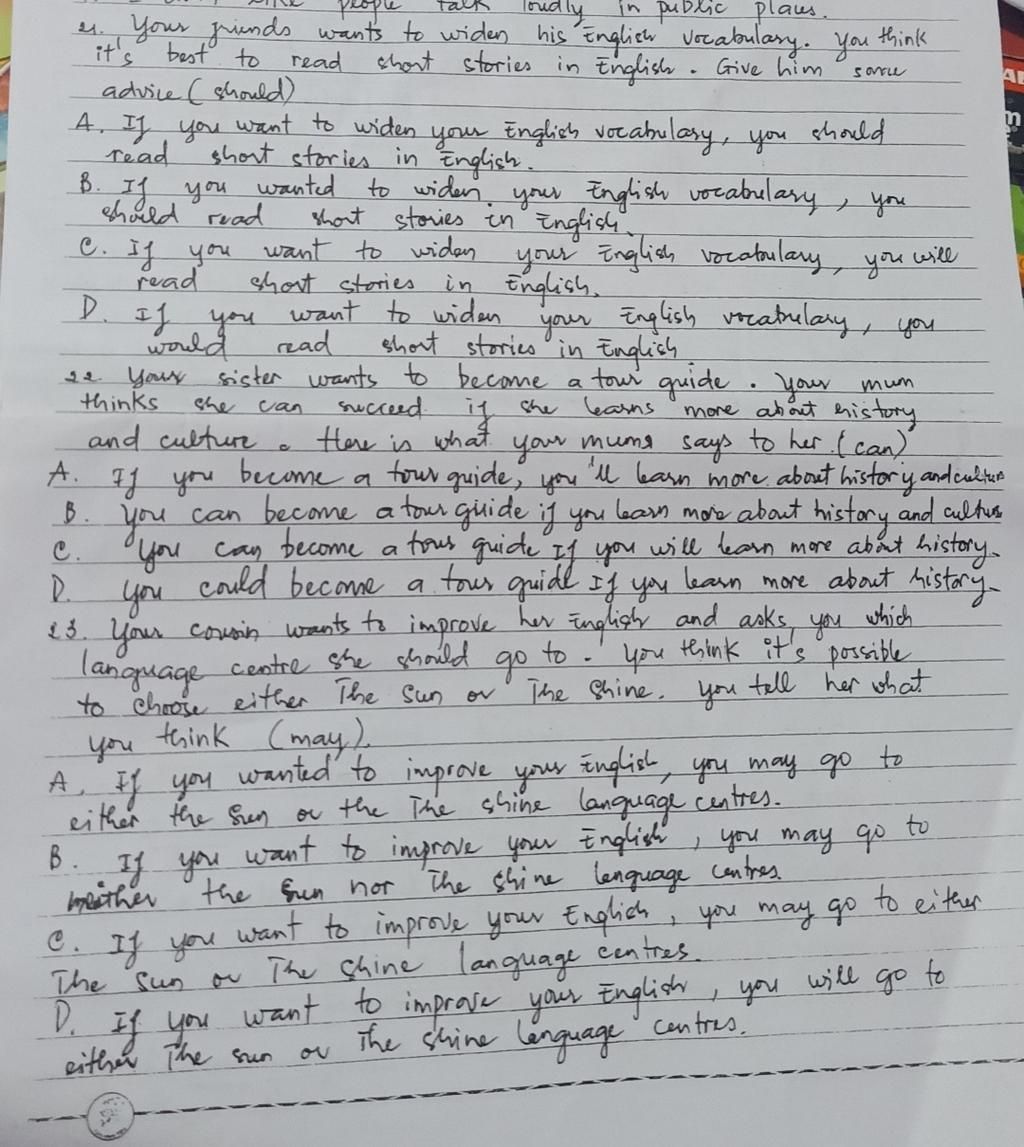 like people talk loudly in public plaus.
21. Your friends wants to widen his English vocabulary. You think
it's best to read short stories in English. Give him some
advice (should)
A. If you want to widen your English vocabulary, you should
read short stories in English.
B. If you wanted to widen your English vocabulary, you
should read short stories in English.
C. If you want to widen your English vocabulary, you will
read short stories in English.
D. If you want to widen your English vocabulary, you
would read short stories in English
22. Your sister wants to become a tour guide. Your mum
thinks she can succeed if she learns more about history
and culture. Here is what your mums says to her. (can)
A. If you become a tour guide, you'll learn more about history and culture
B. You can become a tour guide if you learn more about history and culture
C. You can become a tour guide If you will learn more about history.
D. You could become a tour guide If you learn more about history.
23. Your cousin wants to improve her English and asks you which
language centre she should go to. You think it's possible
to choose either The Sun or The Shine. You tell her what
you think (may).
A. If you wanted to improve your English, you may go to
either the Sun or the The Shine language centres.
B. If you want to improve your English, you may go to
neither the Sun nor The Shine language centres.
C. If you want to improve your English, you may go to either
The Sun or The Shine language centres.
D. If you want to improve your English, you will go to
either The Sun or The Shine language centres.